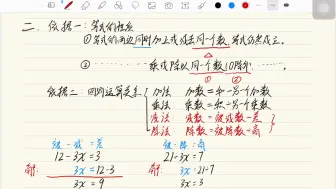 二、依据一：等式的性质
①等式的两边同时加上或减去同一个数，等式仍然成立。
② …… 乘或除以同一个数(0除外) ……
① ②
依据二：四则运算关系
加法 加数=和-另一个加数
乘法 乘数=积÷另一个乘数
减法 减数=被减数-差
除法 除数=被除数÷商
被-减=差 被÷除=商
12-3x=3 21÷3x=7
解： 3x=12-3 解： 3x=21÷7
3x=9 3x=3